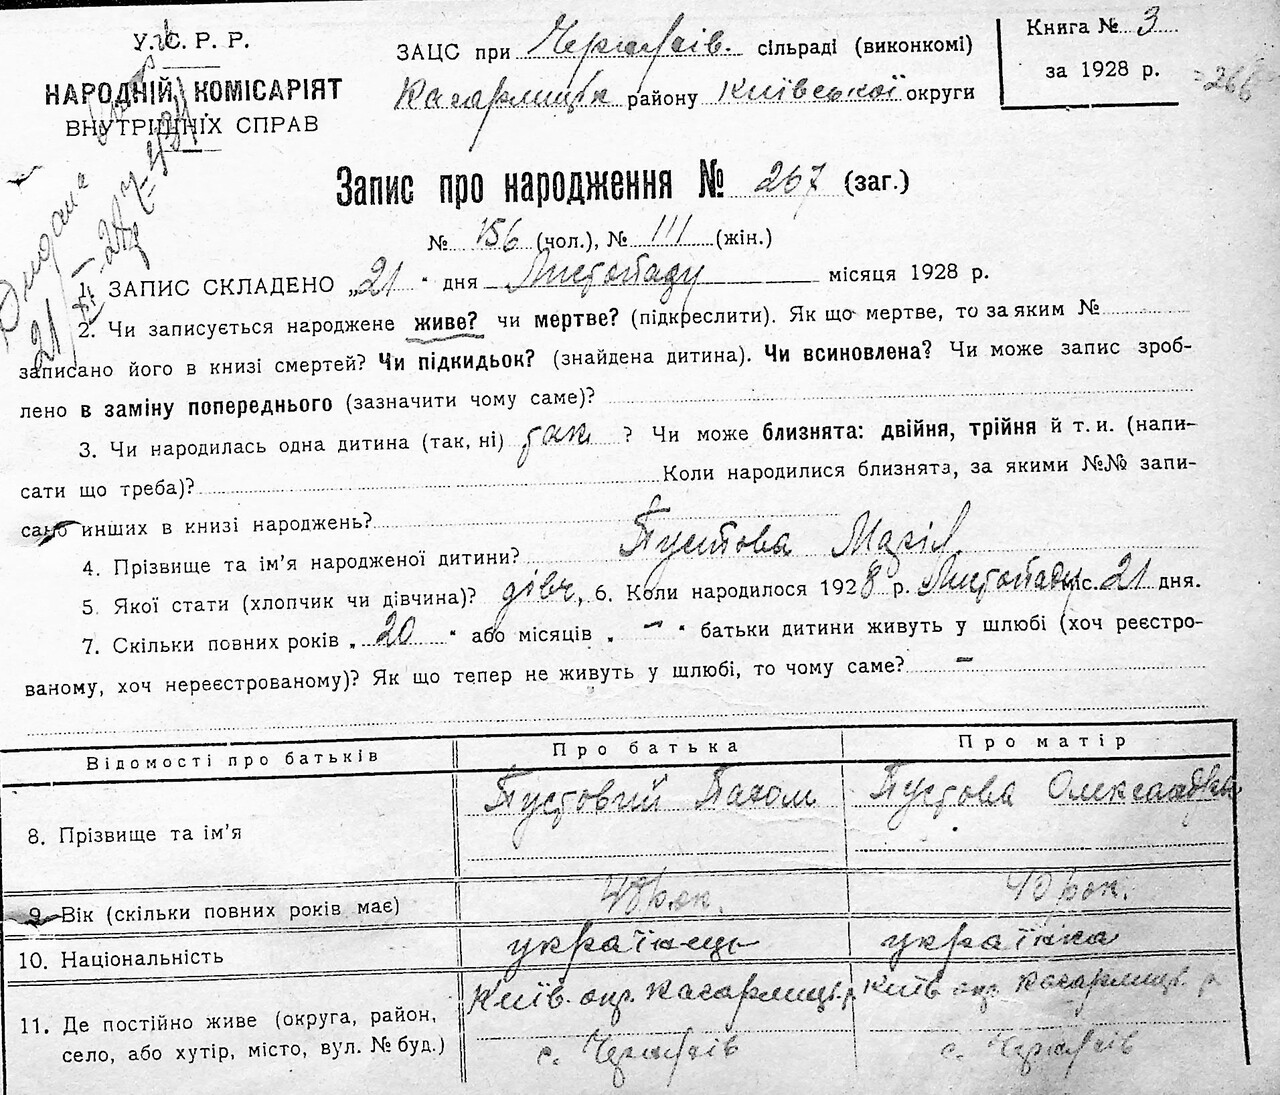 У.С.Р.Р.
НАРОДНІЙ КОМІСАРІЯТ
ВНУТРІШНІХ СПРАВ
ЗАЦС при сільраді (виконкомі)
Кагарлицьк району Київської округи
Книга № 3
за 1928 р.
266
Запис про народження № 267 (заг.)
№ 156 (чол.), № 111 (жін.)
1. ЗАПИС СКЛАДЕНО „21 " дня Листопаду місяця 1928 р.
2. Чи записується народжене живе? чи мертве? (підкреслити). Як що мертве, то за яким №
записано його в книзі смертей? Чи підкидьок? (знайдена дитина). Чи всиновлена? Чи може запис зроб-
лено в заміну попереднього (зазначити чому саме)?
3. Чи народилась одна дитина (так, ні) так ? Чи може близнята: двійня, трійня й т. и. (напи-
сати що треба)? Коли народилися близнята, за якими №№ запи-
сано инших в книзі народжень?
4. Прізвище та ім'я народженої дитини? Пустова Марія
5. Якої стати (хлопчик чи дівчина)? дівч, 6. Коли народилося 1928 р. Листопаду міс. 21 дня.
7. Скільки повних років „ 20 " або місяців „ — " батьки дитини живуть у шлюбі (хоч реєстро-
ваному, хоч нереєстрованому)? Як що тепер не живуть у шлюбі, то чому саме? —
Відомості про батьків Про батька Про матір
8. Прізвище та ім'я Пустовий Пахом Пустова Олександра
9. Вік (скільки повних років має) 48 рок. 40 рок.
10. Національність українець українка
11. Де постійно живе (округа, район, Київ. окр. Кагарлицьк. р Київ окр. Кагарлицьк. р
село, або хутір, місто, вул. № буд.) с. с.